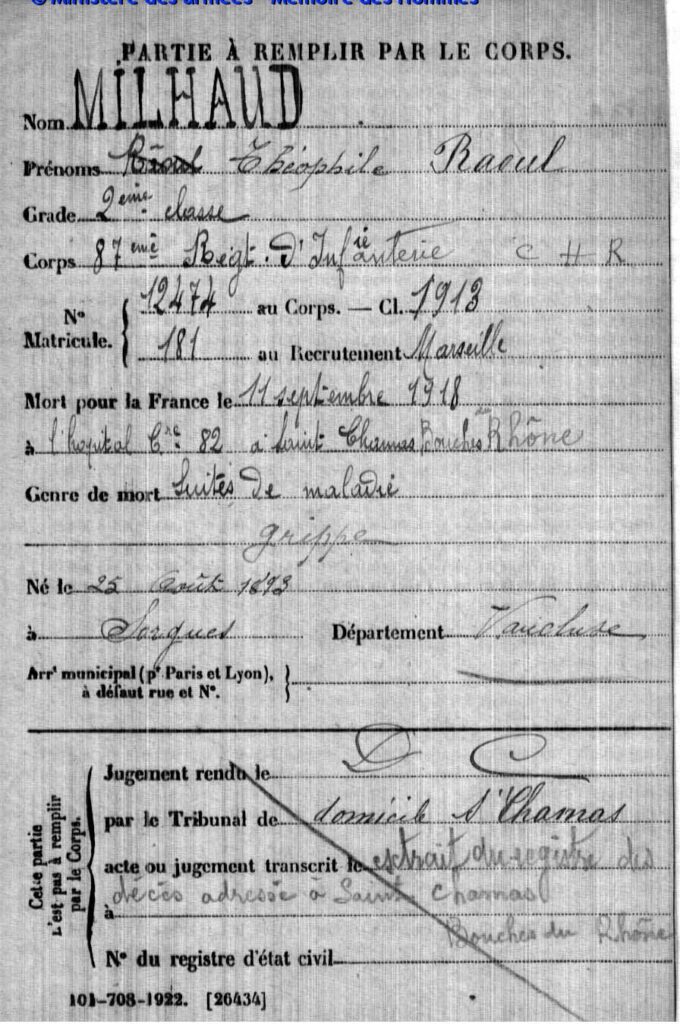 © Ministère des armées - Mémoire des Hommes
PARTIE À REMPLIR PAR LE CORPS.
Nom MILHAUD
Prénoms Théophile Raoul
Grade 2eme classe
Corps 87eme Régt. d'Infanterie C H R
N° Matricule. { 12474 au Corps. — Cl. 1913
181 au Recrutement Marseille
Mort pour la France le 11 septembre 1918
à l'hopital Cre 82 à Saint Chamas, Bouches du Rhône
Genre de mort Suites de maladie
grippe
Né le 25 Août 1893
à Sorgues Département Vaucluse
Arrt municipal (pr Paris et Lyon),
à défaut rue et N°.
Cette partie n'est pas à remplir par le Corps.
Jugement rendu le D C
par le Tribunal de domicile St Chamas
acte ou jugement transcrit le extrait du registre des
décès adressée à Saint Chamas
à Bouches du Rhône
N° du registre d'état civil
101-708-1922. [26434]